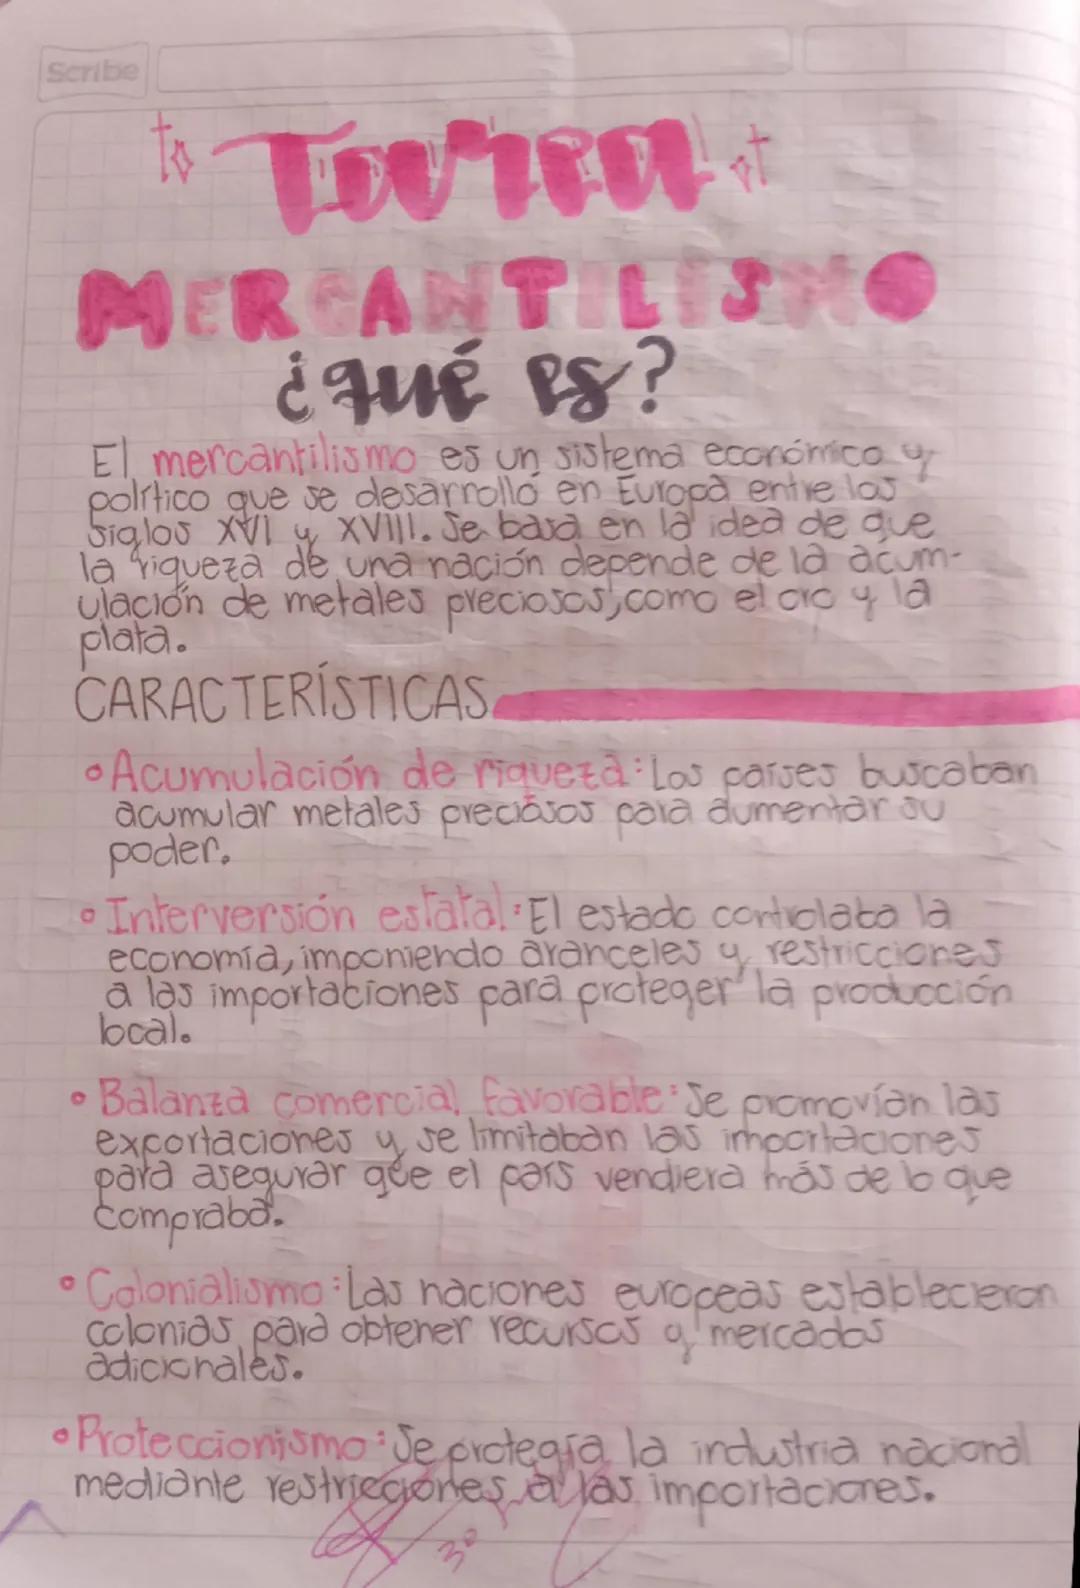 Scribe
Tarea
MERCANTILISMO
¿qué es?
El mercantilismo es un sistema económico y
político que se desarrolló en Europa entre los
siglos XVI y XVIII. Se basa en la idea de que
la riqueza de una nación depende de la acum-
ulación de metales preciosos, como el oro y la
plata.
CARACTERÍSTICAS
• Acumulación de riqueza: Los países buscaban
acumular metales preciosos para aumentar su
poder.
• Interversión estatal: El estado controlaba la
economía, imponiendo aranceles y restricciones
a las importaciones para proteger la producción
local.
• Balanza comercial favorable: Se promovían las
exportaciones y se limitaban las importaciones
para asegurar que el país vendiera más de lo que
compraba.
• Colonialismo: Las naciones europeas establecieron
colonias para obtener recursos y mercados
adicionales.
• Proteccionismo: Se protegía la industria nacional
mediante restricciones a las importaciones.